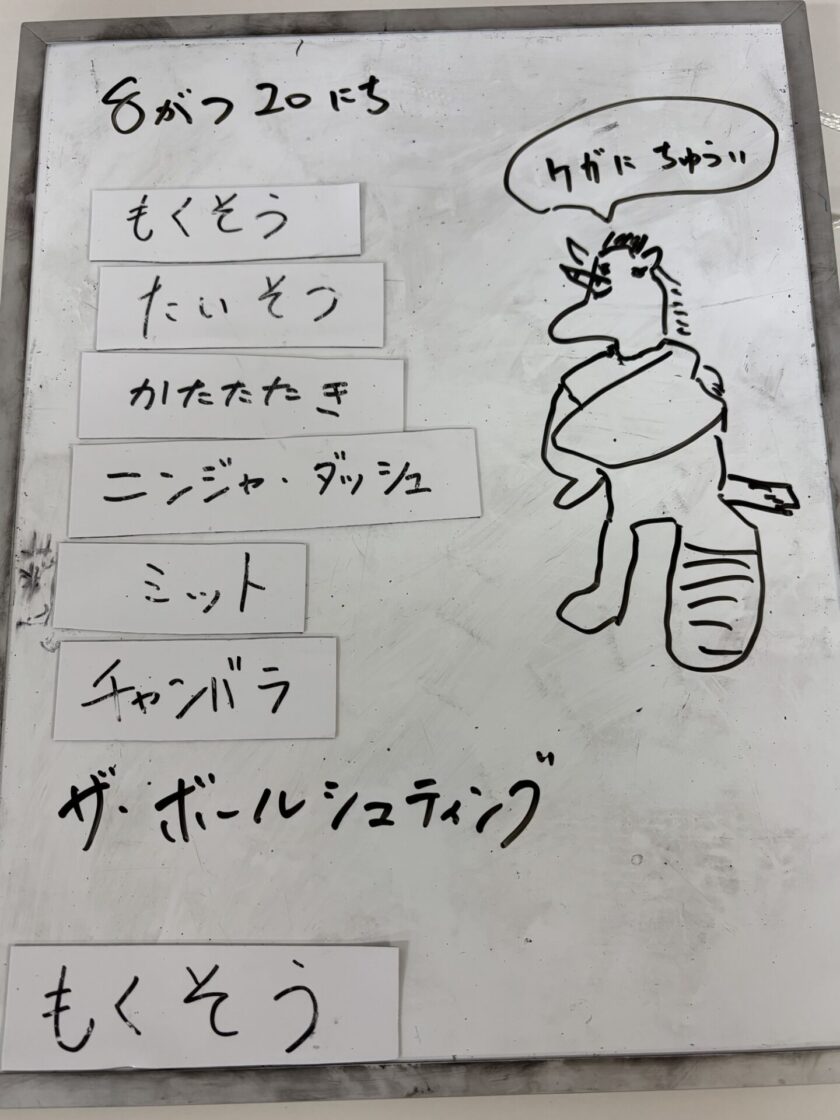 8がつ20にち
ケガにちゅうい
もくそう
たいそう
かたたたき
ニンジャ・ダッシュ
ミット
チャンバラ
ザ・ボールシュティング
もくそう